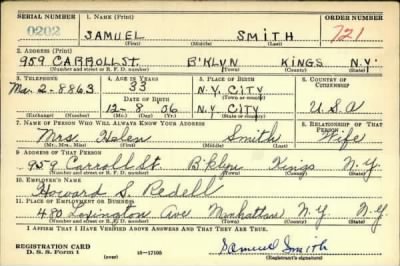 SERIAL NUMBER 1. NAME (Print) ORDER NUMBER
0202 SAMUEL SMITH 721
(First) (Middle) (Last)
2. ADDRESS (Print)
959 CARROLL ST. B'KLYN KINGS N.Y.
(Number and street or R. F. D. number) (Town) (County) (State)
3. TELEPHONE 4. AGE IN YEARS 5. PLACE OF BIRTH 6. COUNTRY OF CITIZENSHIP
33 N.Y. CITY
2-8863 DATE OF BIRTH (Town or county)
12-8 06 N.Y. CITY U.S.A
(Exchange) (Number) (Mo.) (Day) (Yr.) (State or country)
7. NAME OF PERSON WHO WILL ALWAYS KNOW YOUR ADDRESS 8. RELATIONSHIP OF THAT PERSON
Mrs. Helen Smith Wife
(Mr., Mrs., Miss) (First) (Middle) (Last)
9. ADDRESS OF THAT PERSON
959 Carroll St. B'klyn Kings N.Y
(Number and street or R. F. D. number) (Town) (County) (State)
10. EMPLOYER'S NAME
Howard S. Redell
11. PLACE OF EMPLOYMENT OR BUSINESS
480 Lexington Ave Manhattan N.Y. N.Y
(Number and street or R. F. D. number) (Town) (County) (State)
I AFFIRM THAT I HAVE VERIFIED ABOVE ANSWERS AND THAT THEY ARE TRUE.
REGISTRATION CARD
D. S. S. Form 1 (over) 16-17105 Samuel Smith
(Registrant's signature)